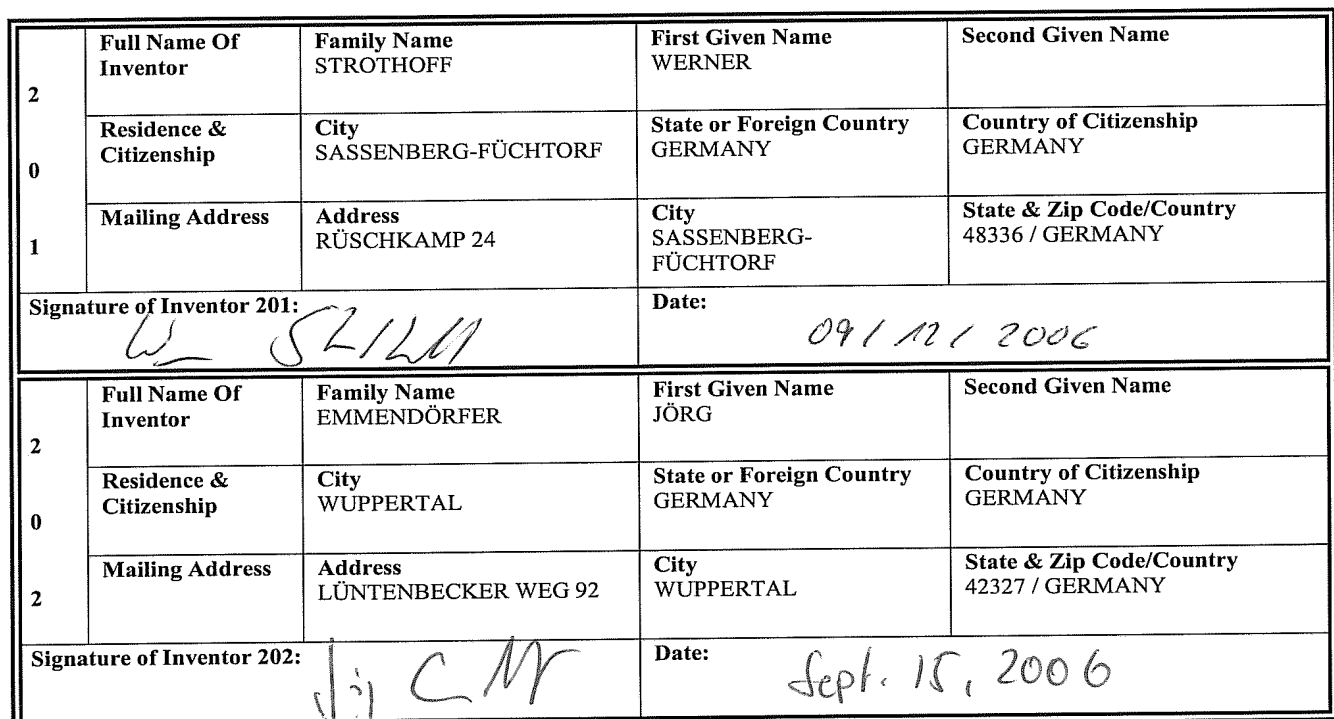 2
0
1
Full Name Of Inventor
Family Name
STROTHOFF
First Given Name
WERNER
Second Given Name
Residence & Citizenship
City
SASSENBERG-FÜCHTORF
State or Foreign Country
GERMANY
Country of Citizenship
GERMANY
Mailing Address
Address
RÜSCHKAMP 24
City
SASSENBERG-
FÜCHTORF
State & Zip Code/Country
48336 / GERMANY
Signature of Inventor 201:
Date:
09/12/2006
2
0
2
Full Name Of Inventor
Family Name
EMMENDÖRFER
First Given Name
JÖRG
Second Given Name
Residence & Citizenship
City
WUPPERTAL
State or Foreign Country
GERMANY
Country of Citizenship
GERMANY
Mailing Address
Address
LÜNTENBECKER WEG 92
City
WUPPERTAL
State & Zip Code/Country
42327 / GERMANY
Signature of Inventor 202:
Date:
Sept. 15, 2006